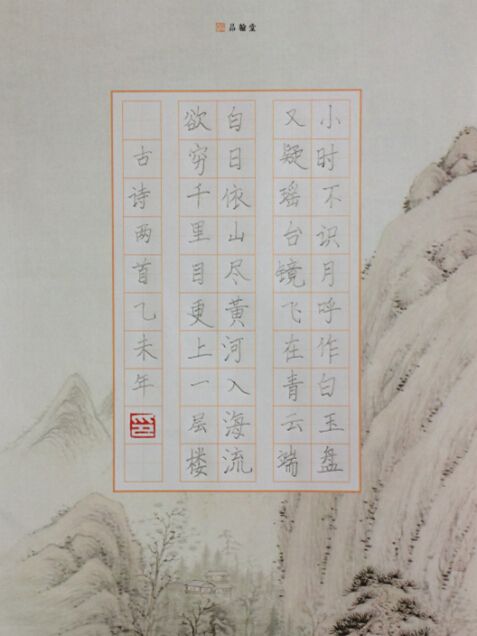 品翰堂
小时不识月呼作白玉盘
又疑瑶台镜飞在青云端
白日依山尽黄河入海流
欲穷千里目更上一层楼
古诗两首乙未年